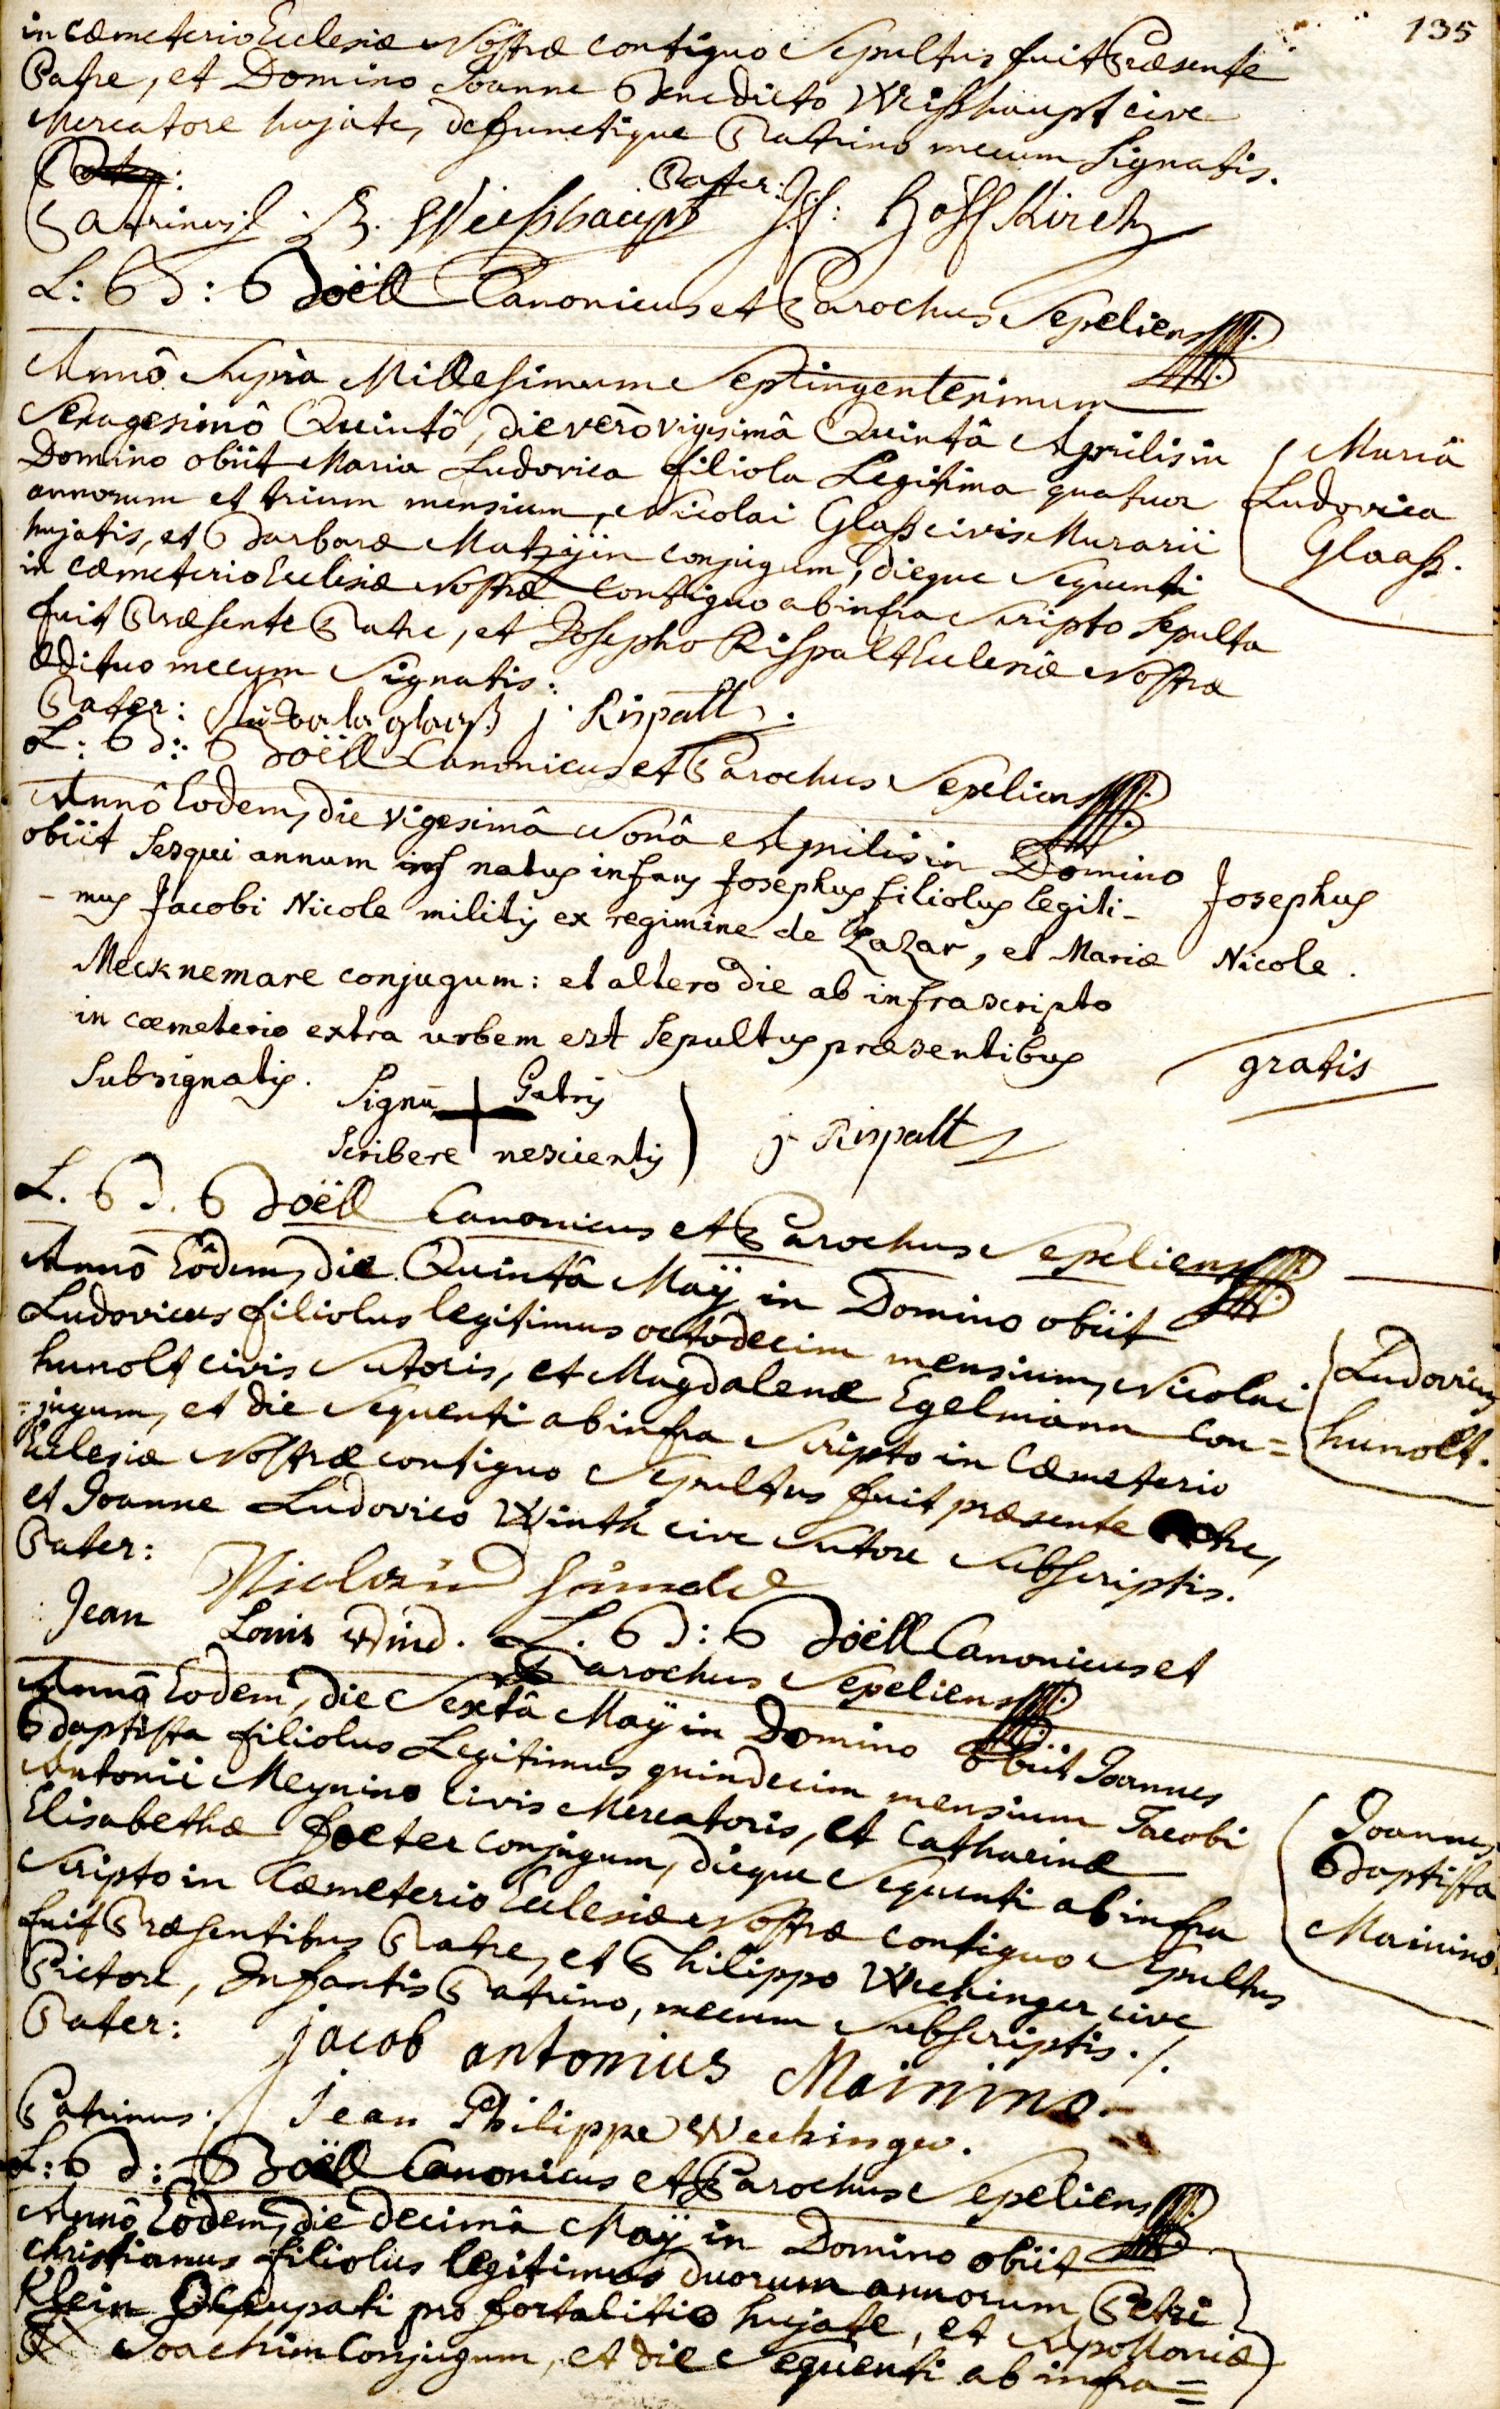 135
in Cæmeterio Eclesiæ Nostræ contiguo Sepultus fuit Præsente
Patre, et Domino Joanne Benedicto Weishaupt cive
Mercatore hujate, defunctique Patrino mecum Signatis.
Pater:
Patrinus J. B. Weishaupt Pater: J: Hoffkirch
L: B: Boëll Canonicus et Parochus Sepeliens
Annô Supra Millesimum Septingentesimum
Sexagesimô Quintô, die verò vigesimâ Quintâ Aprilis in
Domino obiit Maria Ludovica filiola Legitima quatuor
annorum et trium mensium, Nicolai Glaß civis Murarii
hujatis, et Barbaræ Matzgin conjugum, dieque Sequenti
in cæmeterio Eclesiæ Nostræ contiguo ab infra Scripto Sepulta
fuit Præsente Patre, et Josepho Rispalt Eclesiæ Nostræ
ædituo mecum Signatis:
Maria
Ludovica
Glaaß.
Pater: glaß j. Rispatt.
L: B: Boëll Canonicus et Parochus Sepeliens
Annô Eodem, die vigesimâ Nonâ Aprilis in Domino
obiit Sesqui annum natus infans Josephus filiolus legiti-
-mus Jacobi Nicole militis ex regimine de Zazar, et Mariæ
Mecknemare conjugum: et altero die ab infrascripto
in cæmeterio extra urbem est Sepultus præsentibus
Subsignatis.
Josephus
Nicole.
gratis
Signū Patris
Scribere nescientis j. Rispatt
L. B. Boëll Canonicus et Parochus Sepeliens
Annô Eôdem, die Quintâ Maÿ in Domino obiit
Ludovicus filiolus legitimus octodecim mensium, Nicolai
hunolt civis Sutoris, et Magdalenæ Egelmann con=
=jugum, et die Sequenti ab infra Scripto in Cæmeterio
Eclesiæ Nostræ contiguo Sepultus fuit præsente Patre,
et Joanne Ludovico Winth cive Sutore Subscriptis.
Ludovicus
hunolt.
Pater:
Jean Louis Wind. L. B: Boëll Canonicus et
Parochus Sepeliens
Annô Eodem, die Sextâ Maÿ in Domino obiit Joannes
Baptista filiolus Legitimus quindecim mensium Jacobi
Antonii Meynino Civis Mercatoris, et Catharinæ
Elisabethæ foeter conjugum, dieque Sequenti ab infra
Scripto in Cæmeterio Eclesiæ Nostræ contiguo Sepultus
fuit Præsentibus Patre, et Philippo Wechinger cive
Pictore, Infantis Patrino, mecum Subscriptis./.
Joannes
Baptista
Mainino
Pater: jacob antonius Mainino.
Patrinus: Jean Philippe Wechinger.
L: B: Boëll Canonicus et Parochus Sepeliens
Annô Eôdem, die decimâ Maÿ in Domino obiit
Christianus filiolus legitimus duorum annorum, Petri
Klein Occupati pro fortalitio hujate, et Apolloniæ
Joachim Conjugum, et die Sequenti ab infra=